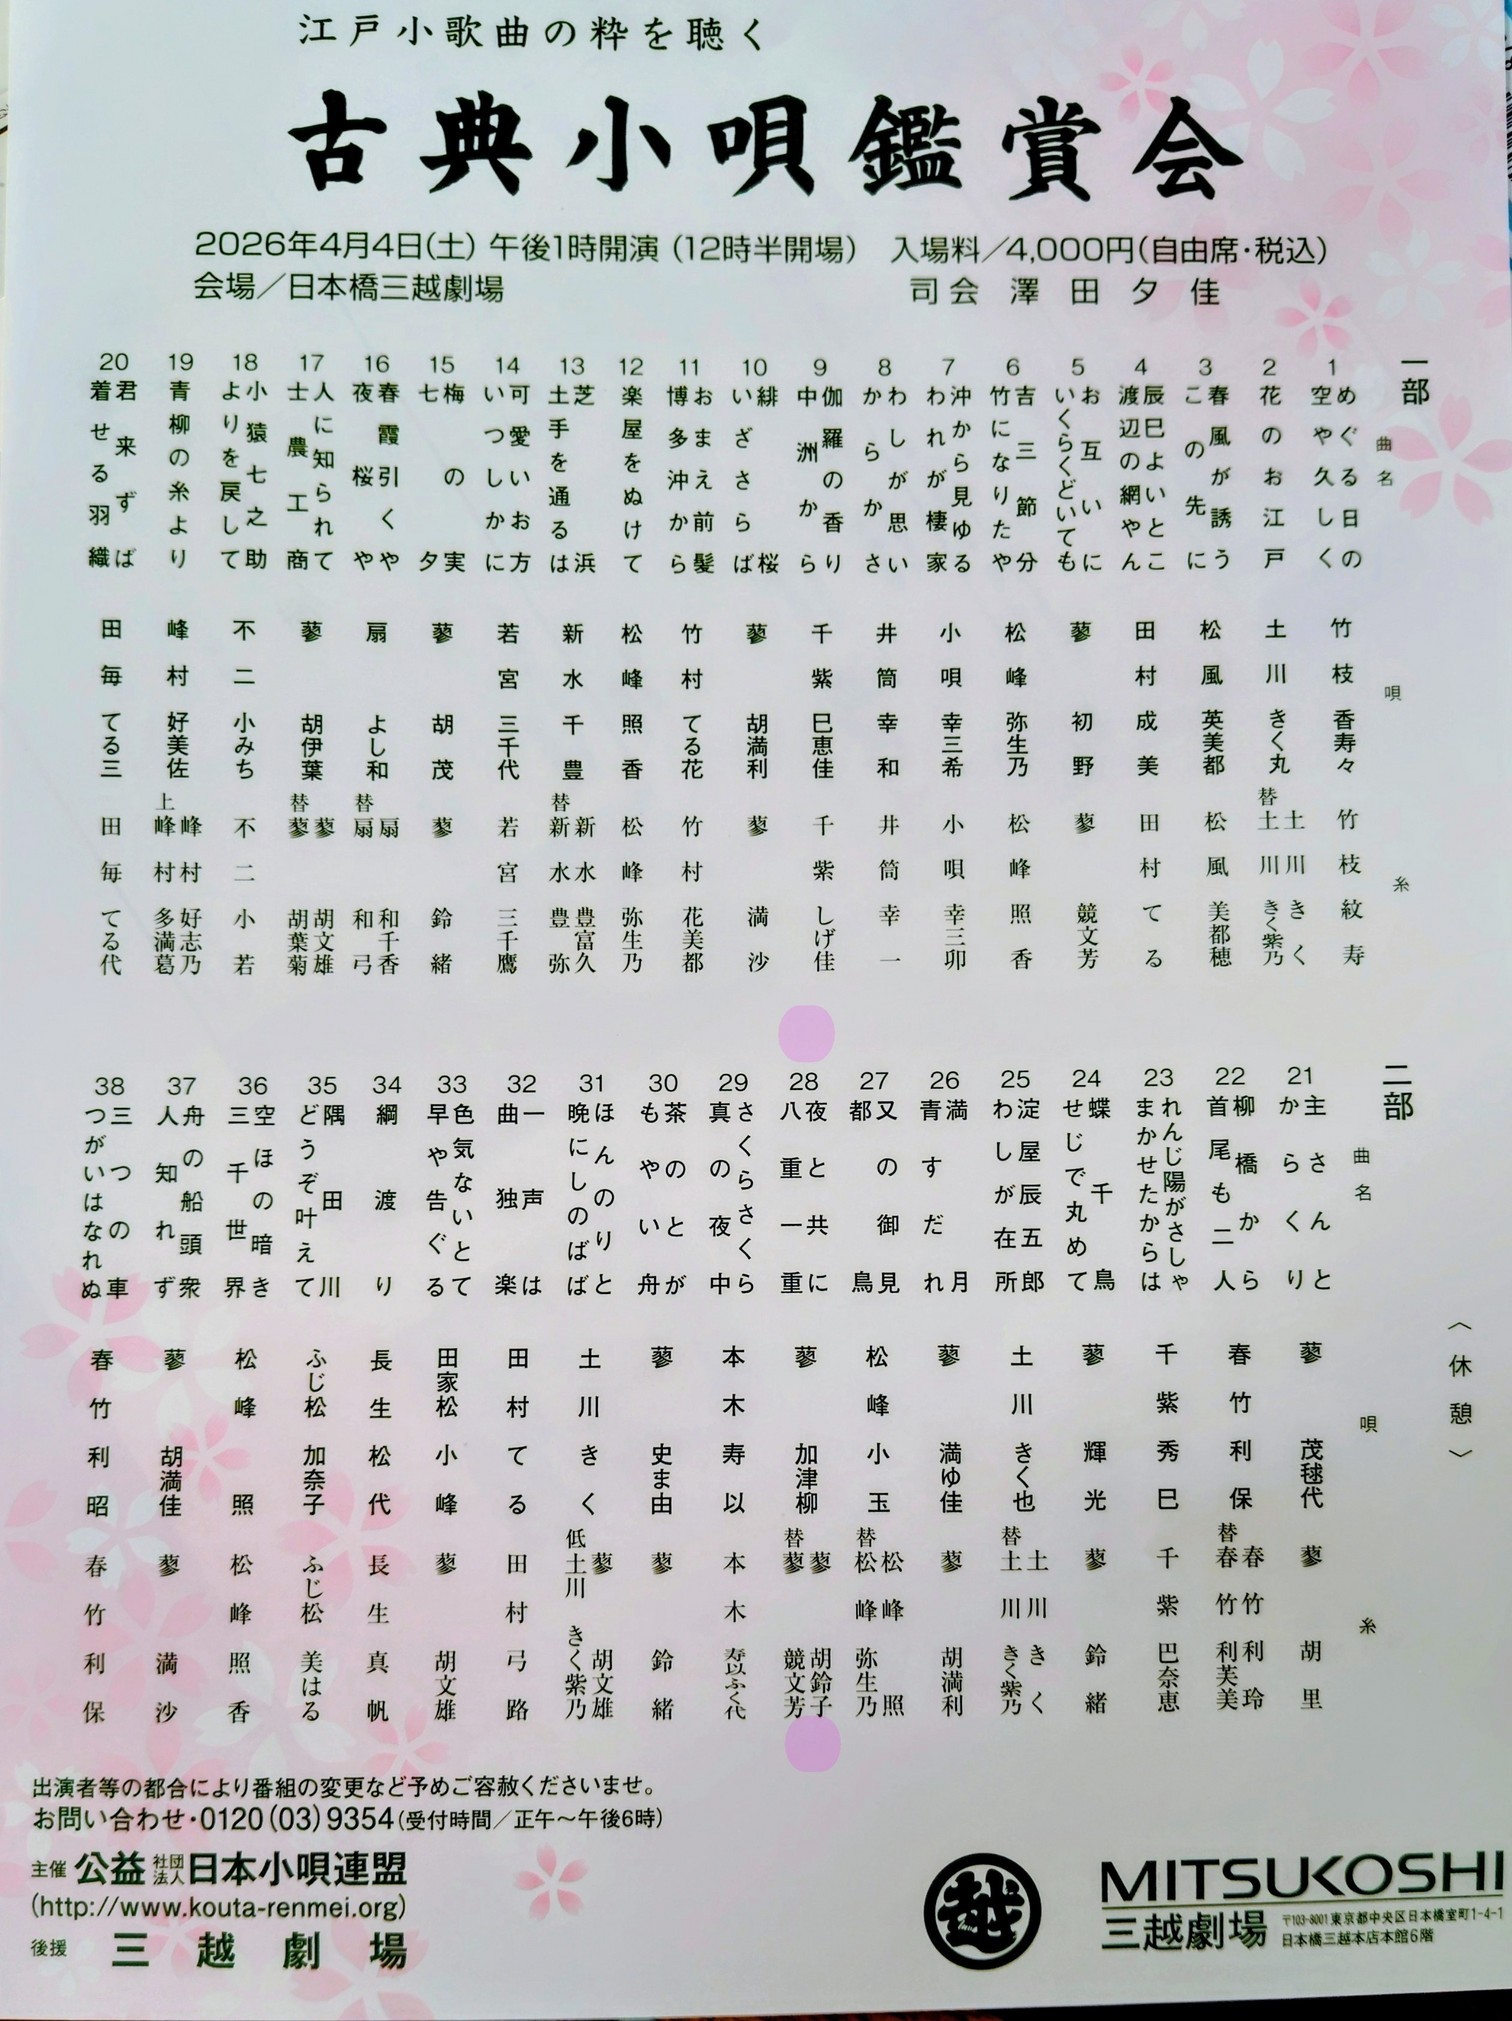 江戸小歌曲の粋を聴く
古典小唄鑑賞会
2026年4月4日(土) 午後1時開演 (12時半開場) 入場料／4,000円(自由席・税込)
会場／日本橋三越劇場
司会 澤田夕佳
一部
曲名
唄
糸
1
めぐる日の
空や久しく
竹枝香寿々
竹枝紋寿
2
花のお江戸
土川きく丸
土川きく
替 土川きく紫乃
3
春風が誘う
この先に
松風英美都
松風美都穂
4
辰巳よいとこ
渡辺の網やん
田村成美
田村てる
5
お互いに
いくらくどいても
蓼初野
蓼競文芳
6
吉三節分
竹になりたや
松峰弥生乃
松峰照香
7
沖から見ゆる
われが棲家
小唄幸三希
小唄幸三卯
8
わしが思い
からかさ
井筒幸和
井筒幸一
9
伽羅の香り
中洲から
千紫巳恵佳
千紫しげ佳
10
緋桜
いざさらば
蓼胡満利
蓼満沙
11
おまえ前髪
博多沖から
竹村てる花
竹村花美都
12
楽屋をぬけて
松峰照香
松峰弥生乃
13
芝浜
土手を通るは
新水千豊
新水豊富久
替 新水豊弥
14
可愛いお方
いつしかに
若宮三千代
若宮三千鷹
15
梅の実
七夕
蓼胡茂
蓼鈴緒
16
春霞引くや
夜桜や
扇よし和
扇和千香
替 扇和弓
17
人に知られて
士農工商
蓼胡伊葉
蓼胡文雄
替 蓼胡葉菊
18
小猿七之助
よりを戻して
不二小みち
不二小若
19
青柳の糸より
峰村好美佐
峰村好志乃
上 峰村多満葛
20
君来ずば
着せる羽織
田毎てる三
田毎てる代
〈休憩〉
二部
曲名
唄
糸
21
主さんと
からくり
蓼茂毬代
蓼胡里
22
柳橋から
首尾も二人
春竹利保
春竹利玲
替 春竹利芙美
23
れんじ陽がさしゃ
まかせたからは
千紫秀巳
千紫巴奈恵
24
蝶千鳥
せじで丸めて
蓼輝光
蓼鈴緒
25
淀屋辰五郎
わしが在所
土川きく也
土川きく
替 土川きく紫乃
26
満月
青すだれ
蓼満ゆ佳
蓼胡満利
27
又の御見
都鳥
松峰小玉
松峰照
替 松峰弥生乃
28
夜と共に
八重一重
蓼加津柳
蓼胡鈴子
替 蓼競文芳
29
さくらさくら
真の夜中
本木寿以
本木寿以ふく代
30
茶のとが
もやい舟
蓼史ま由
蓼鈴緒
31
ほんのりと
晩にしのばば
土川きく
蓼胡文雄
低 土川きく紫乃
32
一声は
曲独楽
田村てる
田村弓路
33
色気ないとて
早や告ぐる
田家松小峰
蓼胡文雄
34
綱渡り
長生松代
長生真帆
35
隅田川
どうぞ叶えて
ふじ松加奈子
ふじ松美はる
36
空ほの暗き
三千世界
松峰照
松峰照香
37
舟の船頭衆
人知れず
蓼胡満佳
蓼満沙
38
三つの車
つがいはなれぬ
春竹利昭
春竹利保
出演者等の都合により番組の変更など予めご容赦くださいませ。
お問い合わせ・0120(03)9354(受付時間／正午〜午後6時)
主催 公益社団法人日本小唄連盟
(http://www.kouta-renmei.org)
後援 三越劇場
越
MITSUKOSHI
三越劇場
〒103-8001東京都中央区日本橋室町1-4-1
日本橋三越本店本館6階